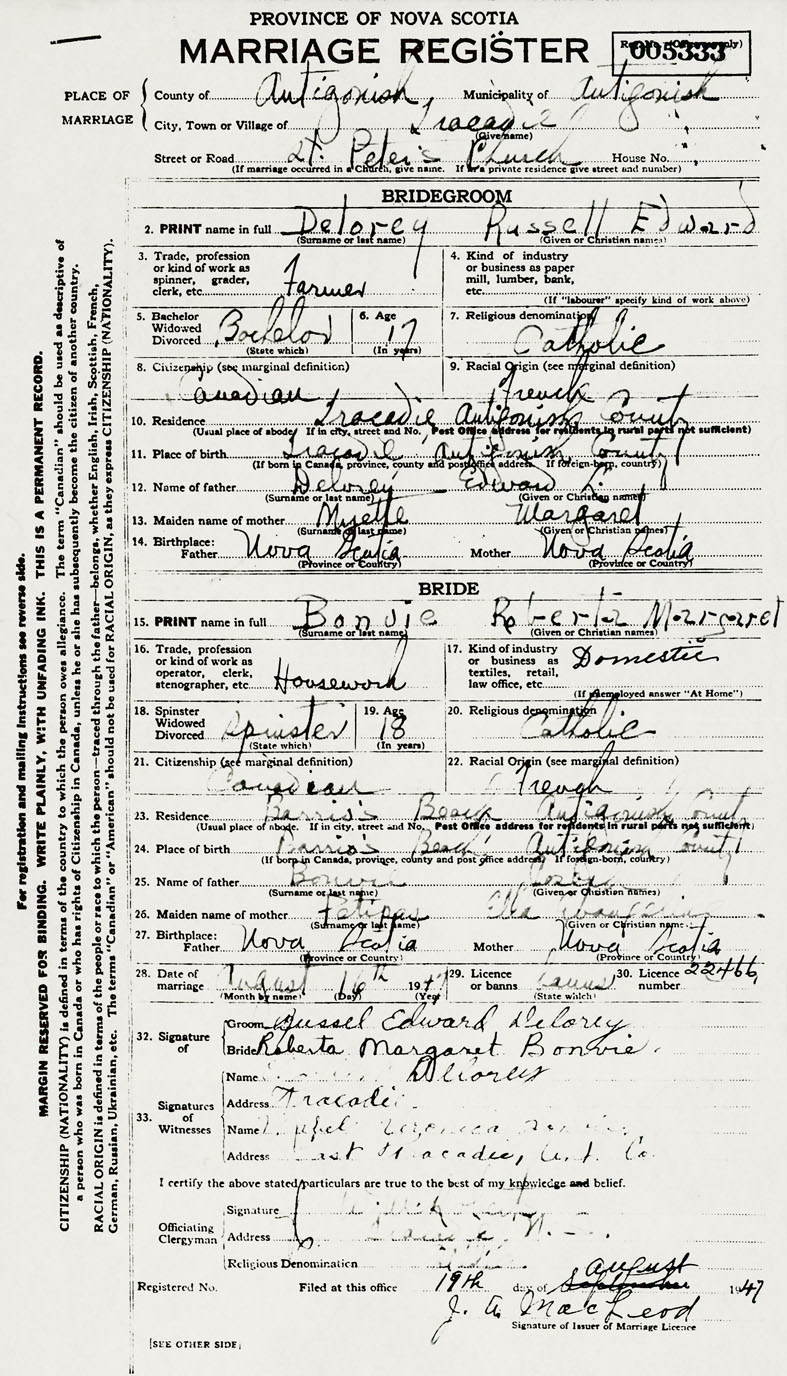 PROVINCE OF NOVA SCOTIA
MARRIAGE REGISTER
005333
PLACE OF MARRIAGE
County of Antigonish, Municipality of Antigonish
City, Town or Village of Tracadie
(Give name)
Street or Road St. Peter's Church House No.
(If marriage occurred in a Church, give name. If in a private residence give street and number)
BRIDEGROOM
2. PRINT name in full Delorey Russell Edward
(Surname or last name) (Given or Christian names)
3. Trade, profession or kind of work as spinner, grader, clerk, etc. Farmer
4. Kind of industry or business as paper mill, lumber, bank, etc.
(If "labourer" specify kind of work above)
5. Bachelor Widowed Divorced Bachelor
(State which)
6. Age 17
(In years)
7. Religious denomination Catholic
8. Citizenship (see marginal definition) Canadian
9. Racial Origin (see marginal definition) French
10. Residence Tracadie Antigonish County
(Usual place of abode. If in city, street and No. Post Office address for residents in rural parts not sufficient)
11. Place of birth Tracadie Antigonish County
(If born in Canada, province, county and post office address. If foreign-born, country)
12. Name of father Delorey Edward
(Surname or last name) (Given or Christian names)
13. Maiden name of mother Myette Margaret
(Surname or last name) (Given or Christian names)
14. Birthplace: Father Nova Scotia Mother Nova Scotia
(Province or Country) (Province or Country)
BRIDE
15. PRINT name in full Bonvie Roberta Margaret
(Surname or last name) (Given or Christian names)
16. Trade, profession or kind of work as operator, clerk, stenographer, etc. Housework
17. Kind of industry or business as textiles, retail, law office, etc. Domestic
(If unemployed answer "At Home")
18. Spinster Widowed Divorced Spinster
(State which)
19. Age 18
(In years)
20. Religious denomination Catholic
21. Citizenship (see marginal definition) Canadian
22. Racial Origin (see marginal definition) French
23. Residence Barrio's Beach Antigonish County
(Usual place of abode. If in city, street and No. Post Office address for residents in rural parts not sufficient)
24. Place of birth Barrio's Beach Antigonish County
(If born in Canada, province, county and post office address. If foreign-born, country)
25. Name of father Bonvie
(Surname or last name) (Given or Christian names)
26. Maiden name of mother Petipas Ella
(Surname or last name) (Given or Christian names)
27. Birthplace: Father Nova Scotia Mother Nova Scotia
(Province or Country) (Province or Country)
28. Date of marriage August 16th 1947
(Month by name) (Day) (Year)
29. Licence or banns
(State which)
30. Licence number 22466
32. Signature of
Groom Russel Edward Delorey
Bride Roberta Margaret Bonvie
33. Signatures of Witnesses
Name Delorey
Address Tracadie
Name Veronica
Address East Tracadie, Ant. Co.
I certify the above stated particulars are true to the best of my knowledge and belief.
Officiating Clergyman
Signature
Address N. S.
Religious Denomination
August
Registered No. Filed at this office 19th day of September 1947
J. A. MacLeod
Signature of Issuer of Marriage Licence
[SEE OTHER SIDE]
For registration and mailing instructions see reverse side.
MARGIN RESERVED FOR BINDING. WRITE PLAINLY, WITH UNFADING INK. THIS IS A PERMANENT RECORD.
CITIZENSHIP (NATIONALITY) is defined in terms of the country to which the person owes allegiance. The term "Canadian" should be used as descriptive of
a person who was born in Canada or who has rights of Citizenship in Canada, unless he or she has subsequently become the citizen of another country.
RACIAL ORIGIN is defined in terms of the people or race to which the person—traced through the father—belongs, whether English, Irish, Scottish, French,
German, Russian, Ukrainian, etc. The terms "Canadian" or "American" should not be used for RACIAL ORIGIN, as they express CITIZENSHIP (NATIONALITY).